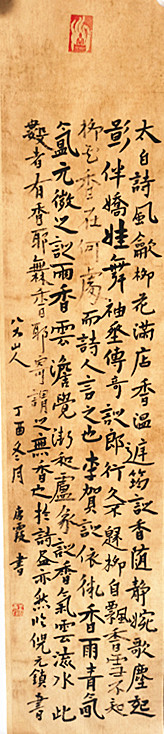 太白詩風歙柳花滿店香溫庭筠詠香隨靜婉歌塵起
影伴嬌娃舞袖垂傳奇詠郎行久不歸柳自飄香雪不知
柳花香在何處而詩人言之也李賀詠依微香雨青氛
氳元微之詠雨香雲澹覺漸和盧象詠香氣雲流水此
數者有香耶無香耶寄謂之無香之於詩益亦然以倪元鎮書
八大山人 丁酉冬月 霞書